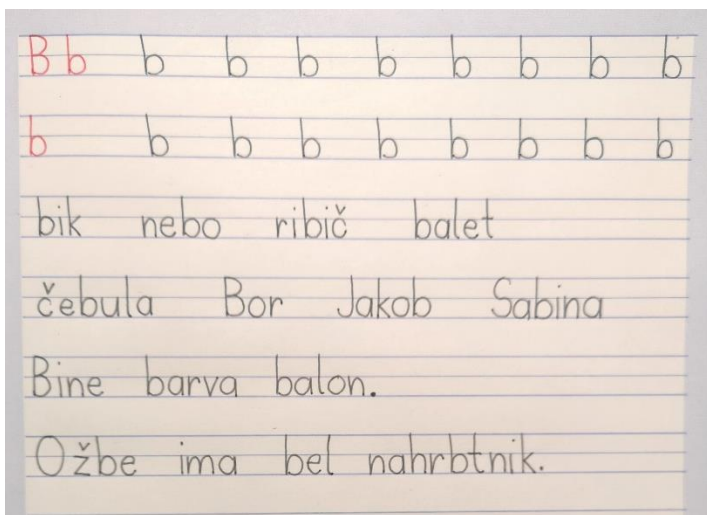 B b b b b b b b b b
b b b b b b b b b
bik nebo ribič balet
čebula Bor Jakob Sabina
Bine barva balon.
Ožbe ima bel nahrbtnik.